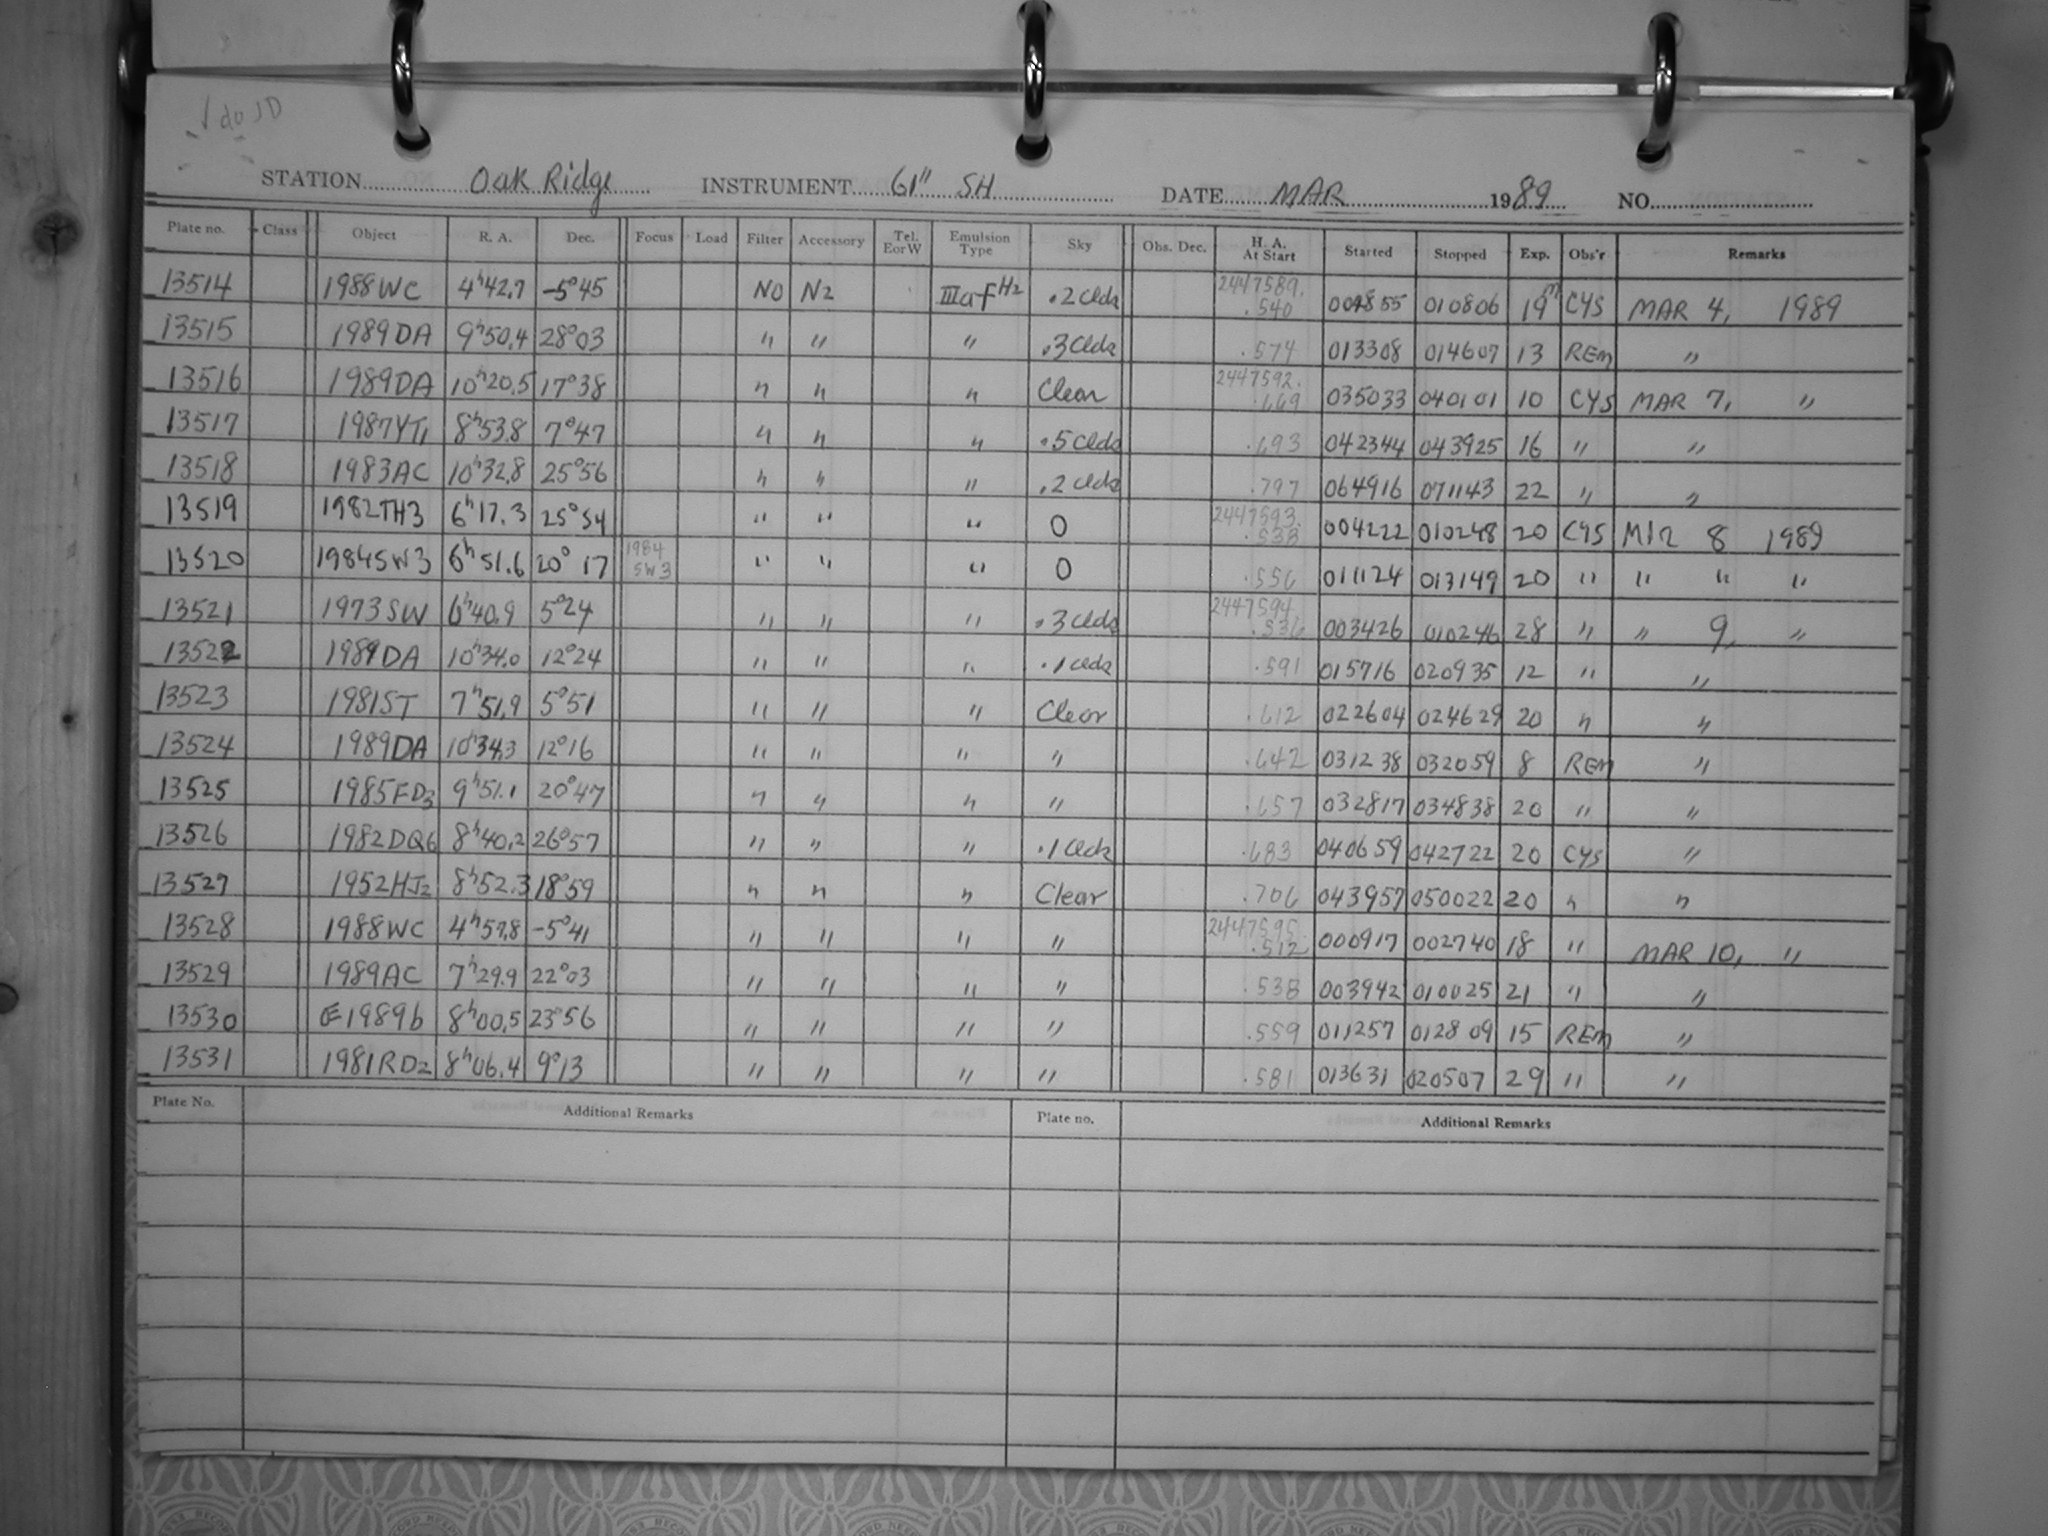 √ do JD
STATION Oak Ridge INSTRUMENT 61" SH DATE MAR 1989 NO.
Plate no. Class Object R. A. Dec. Focus Load Filter Accessory Tel. E or W Emulsion Type Sky Obs. Dec. H. A. At Start Started Stopped Exp. Obs'r Remarks
13514 1988WC 4ʰ42.7 -5°45 NO N2 IIIaf H2 .2 clds 2447589. .540 004855 010806 19ᵐ CYS MAR 4, 1989
13515 1989DA 9ʰ50.4 28°03 " " " .3 clds .574 013308 014607 13 REM "
13516 1989DA 10ʰ20.5 17°38 " " " Clear 2447592. .669 035033 040101 10 CYS MAR 7, "
13517 1987YT1 8ʰ53.8 7°47 " " " .5 clds .693 042344 043925 16 " "
13518 1983AC 10ʰ32.8 25°56 " " " .2 clds .797 064916 071143 22 " "
13519 1982TH3 6ʰ17.3 25°54 " " " 0 2447593. .538 004222 010248 20 CYS MAR 8 1989
13520 1984SW3 6ʰ51.6 20°17 1984 SW3 " " " 0 .556 011124 013149 20 " " " "
13521 1973SW 6ʰ40.9 5°24 " " " .3 clds 2447594. .536 003426 010246 28 " " 9, "
13522 1989DA 10ʰ34.0 12°24 " " " .1 clds .591 015716 020935 12 " "
13523 1981ST 7ʰ51.9 5°51 " " " Clear .612 022604 024629 20 " "
13524 1989DA 10ʰ34.3 12°16 " " " " .642 031238 032059 8 REM "
13525 1985FD3 9ʰ51.1 20°47 " " " " .657 032817 034838 20 " "
13526 1982DQ6 8ʰ40.2 26°57 " " " .1 clds .683 040659 042722 20 CYS "
13527 1952HJ2 8ʰ52.3 18°59 " " " Clear .706 043957 050022 20 " "
13528 1988WC 4ʰ57.8 -5°41 " " " " 2447595. .512 000917 002740 18 " MAR 10, "
13529 1989AC 7ʰ29.9 22°03 " " " " .538 003942 010025 21 " "
13530 1989b 8ʰ00.5 23°56 " " " " .559 011257 012809 15 REM "
13531 1981RD2 8ʰ06.4 9°13 " " " " .581 013631 020507 29 " "
Plate No. Additional Remarks Plate no. Additional Remarks